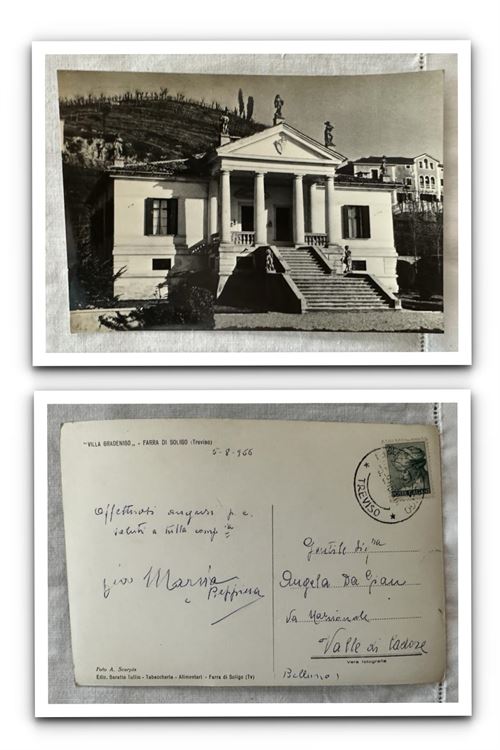 "VILLA GRADENIGO„ - FARRA DI SOLIGO (Treviso)
5-8-966
Affettuosi auguri p.c.
saluti a tutta comp.ia
Marisa
e Peppina
TREVISO
POSTE ITALIANE
Gentile Sig.ra
Angela Da Gian
Via Nazionale
Valle di Cadore
Vera fotografia
Belluno
Foto A. Scarpis
Ediz. Baratto Tullio - Tabaccheria - Alimentari - Farra di Soligo (Tv)